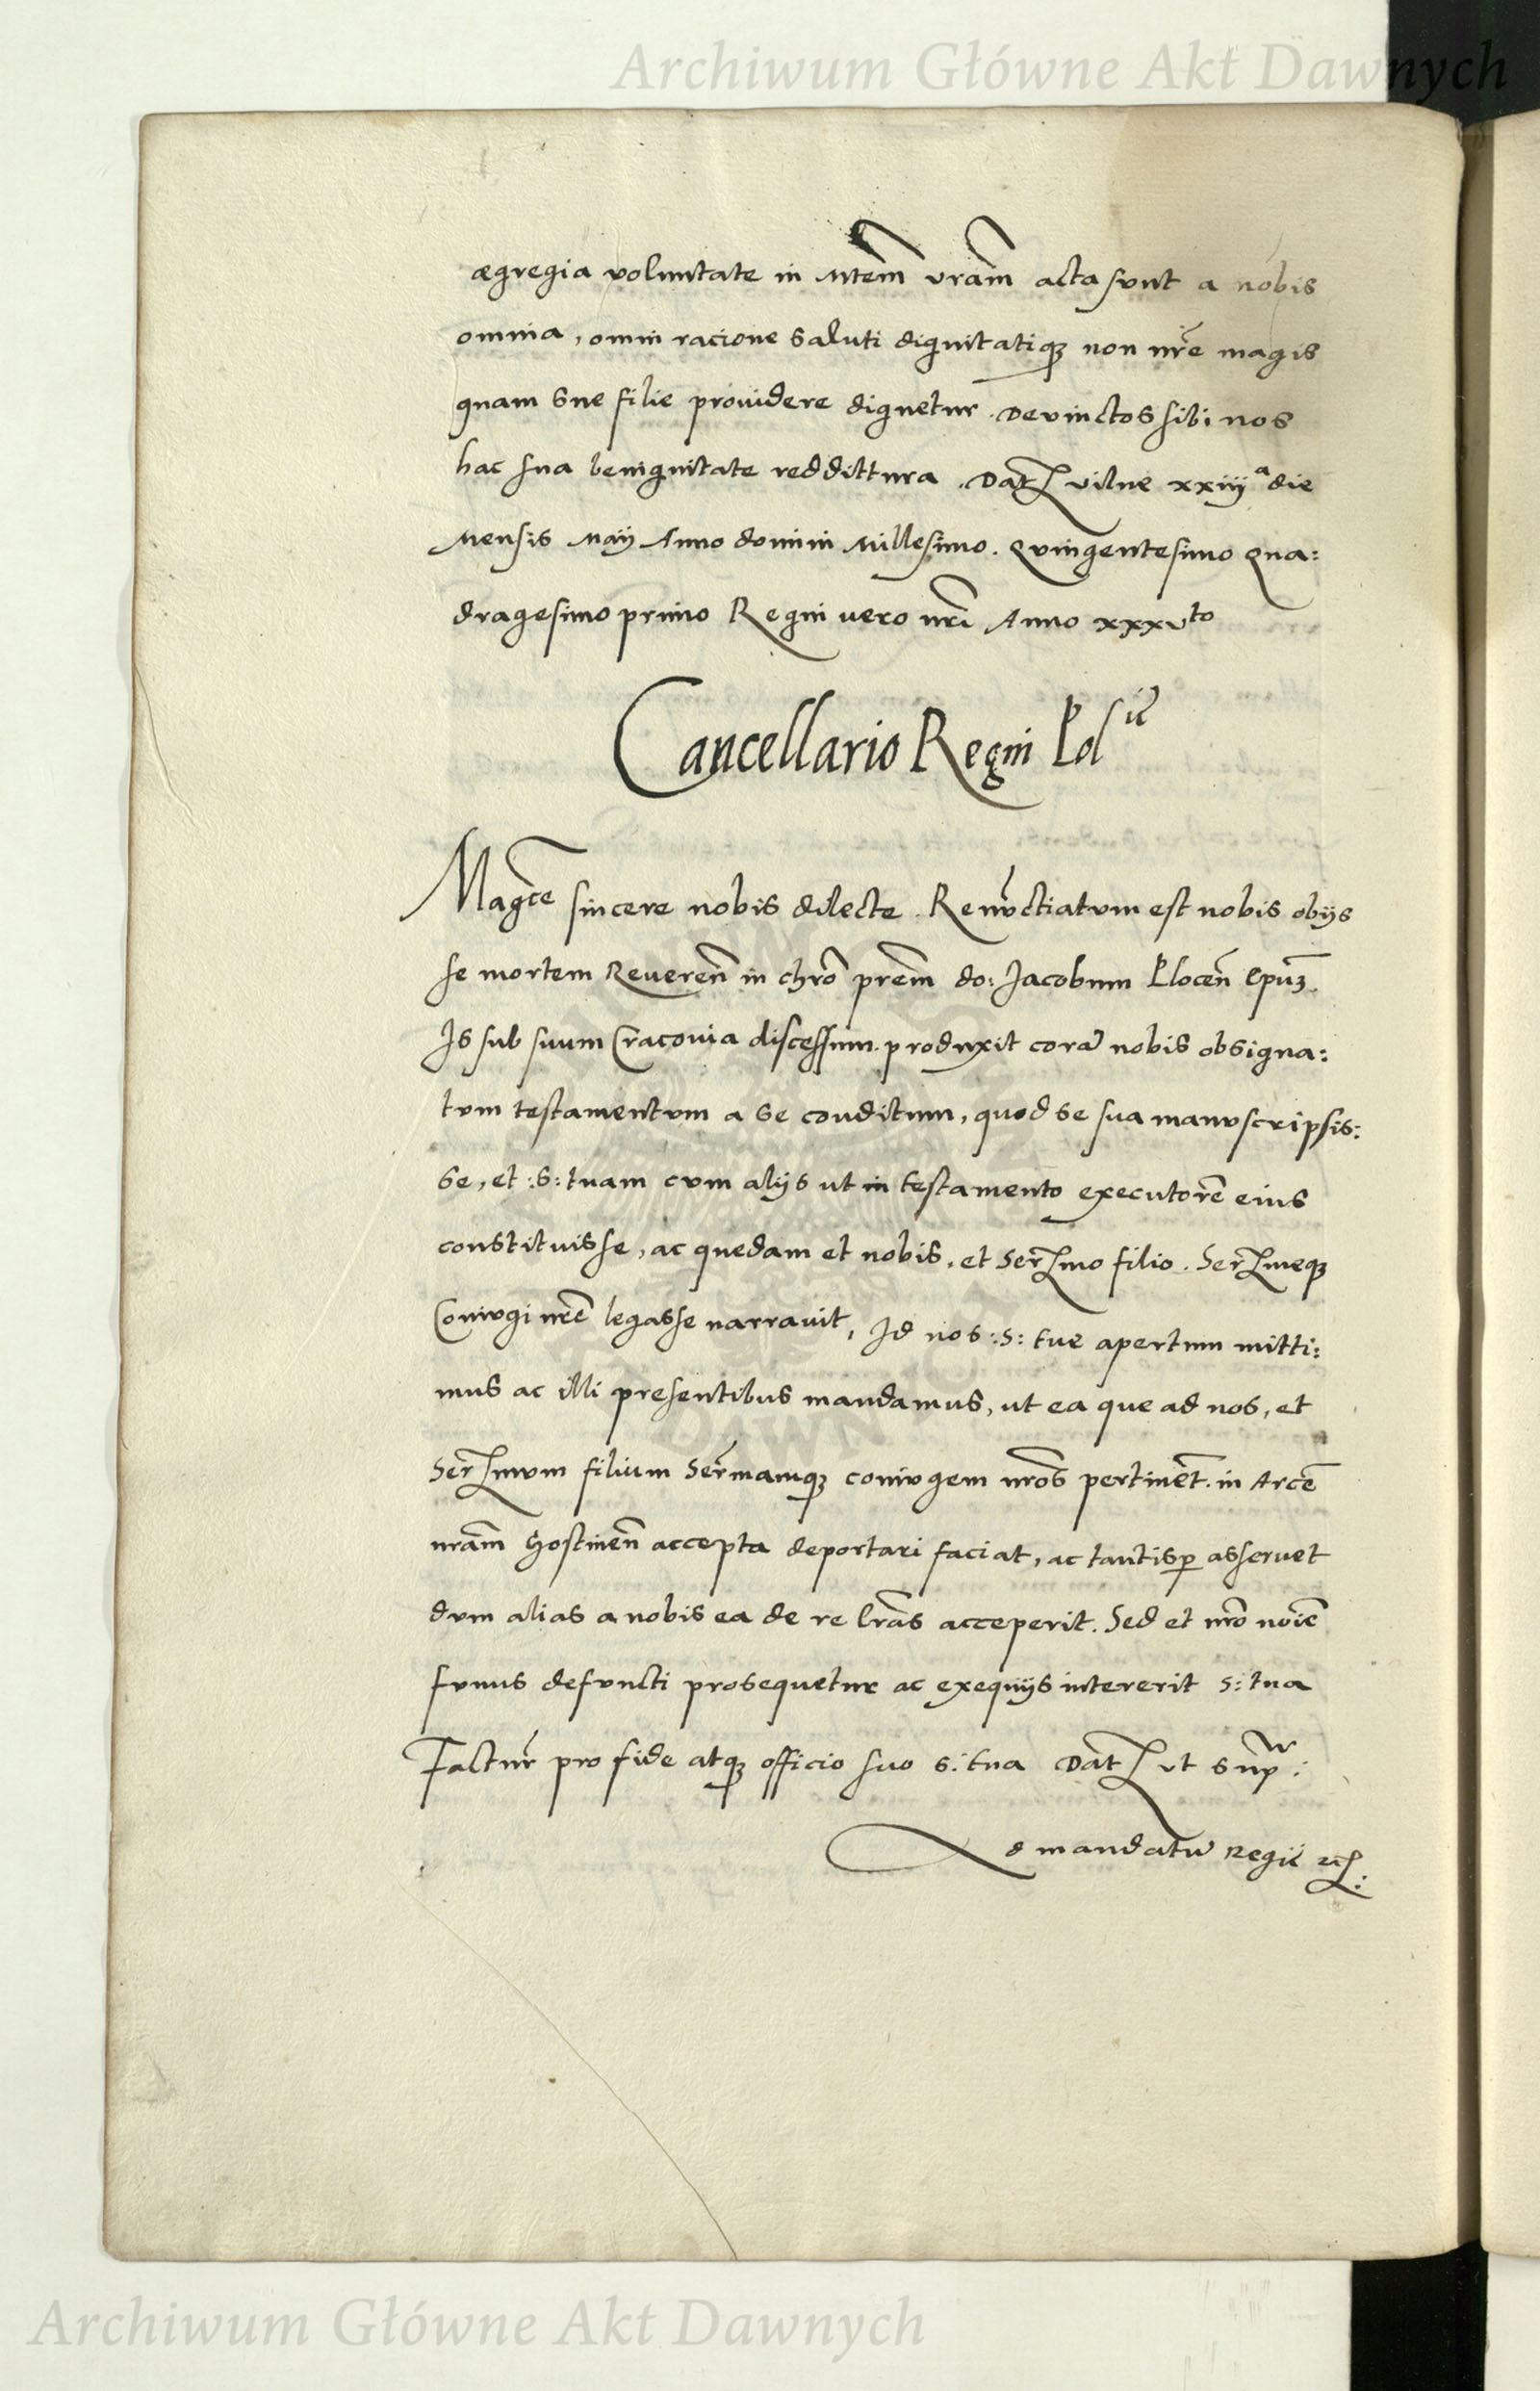 Archiwum Główne Akt Dawnych
ægregia voluntate in Mtem vram acta sunt a nobis
omnia, omni racione saluti dignitatiqȝ non nre magis
quam sue filie providere dignetur. Devinctos sibi nos
hac sua benignitate reddittura. Dat vilne xxiiij a die
Mensis Maij Anno domini Millesimo. Quingentesimo Qua:
dragesimo primo Regni vero nri Anno xxxvto
Cancellario Regni Polie
Magce sincere nobis dilecte. Renuctiatum est nobis obijs
se mortem Reveren in chro prem do: Jacobum Plocen Epuȝ.
Is sub suum Cracovia discessum. produxit cora nobis obsigna:
tum testamentum a se conditum, quod se sua manu scripsis:
se, et :S: tuam cum alijs ut in testamento executore eius
constituisse, ac quedam et nobis, et Sermo filio. Sermeqȝ
Coniugi nre legasse narravit, Id nos :S: tue apertum mitti:
mus ac illi presentibus mandamus, ut ea que ad nos, et
Sermum filium Sermamqȝ coniugem nros pertinet. in Arce
nram Gostinen accepta deportari faciat, ac tantisp asservet
dum alias a nobis ea de re lras acceperit. Sed et nro noie
funus defuncti prosequetur ac exequijs intererit S: tua
Factur pro fide atqȝ officio suo S: tua Dat ut sup:
De mandatu Regis
Archiwum Główne Akt Dawnych